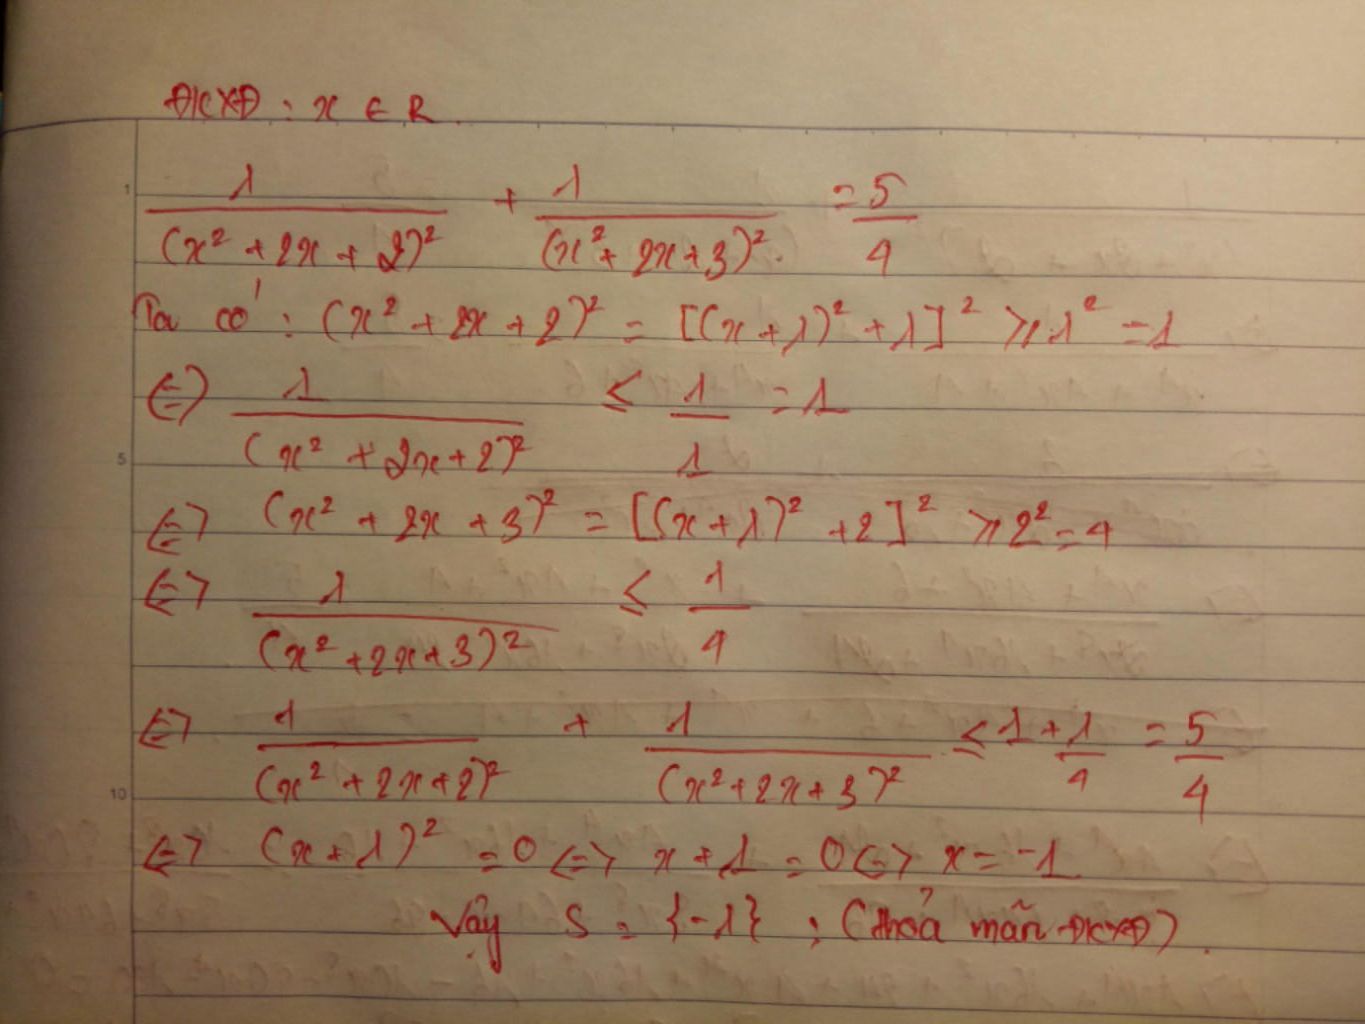 ĐKXĐ : x ∈ R.
1/(x² + 2x + 2)² + 1/(x² + 2x + 3)² = 5/4
Ta có : (x² + 2x + 2)² = [(x + 1)² + 1]² ≥ 1² = 1
⇔ 1/(x² + 2x + 2)² ≤ 1/1 = 1
⇔ (x² + 2x + 3)² = [(x + 1)² + 2]² ≥ 2² = 4
⇔ 1/(x² + 2x + 3)² ≤ 1/4
⇔ 1/(x² + 2x + 2)² + 1/(x² + 2x + 3)² ≤ 1 + 1/4 = 5/4
⇔ (x + 1)² = 0 ⇔ x + 1 = 0 ⇔ x = -1
Vậy S = {-1} ; (thoả mãn ĐKXĐ).